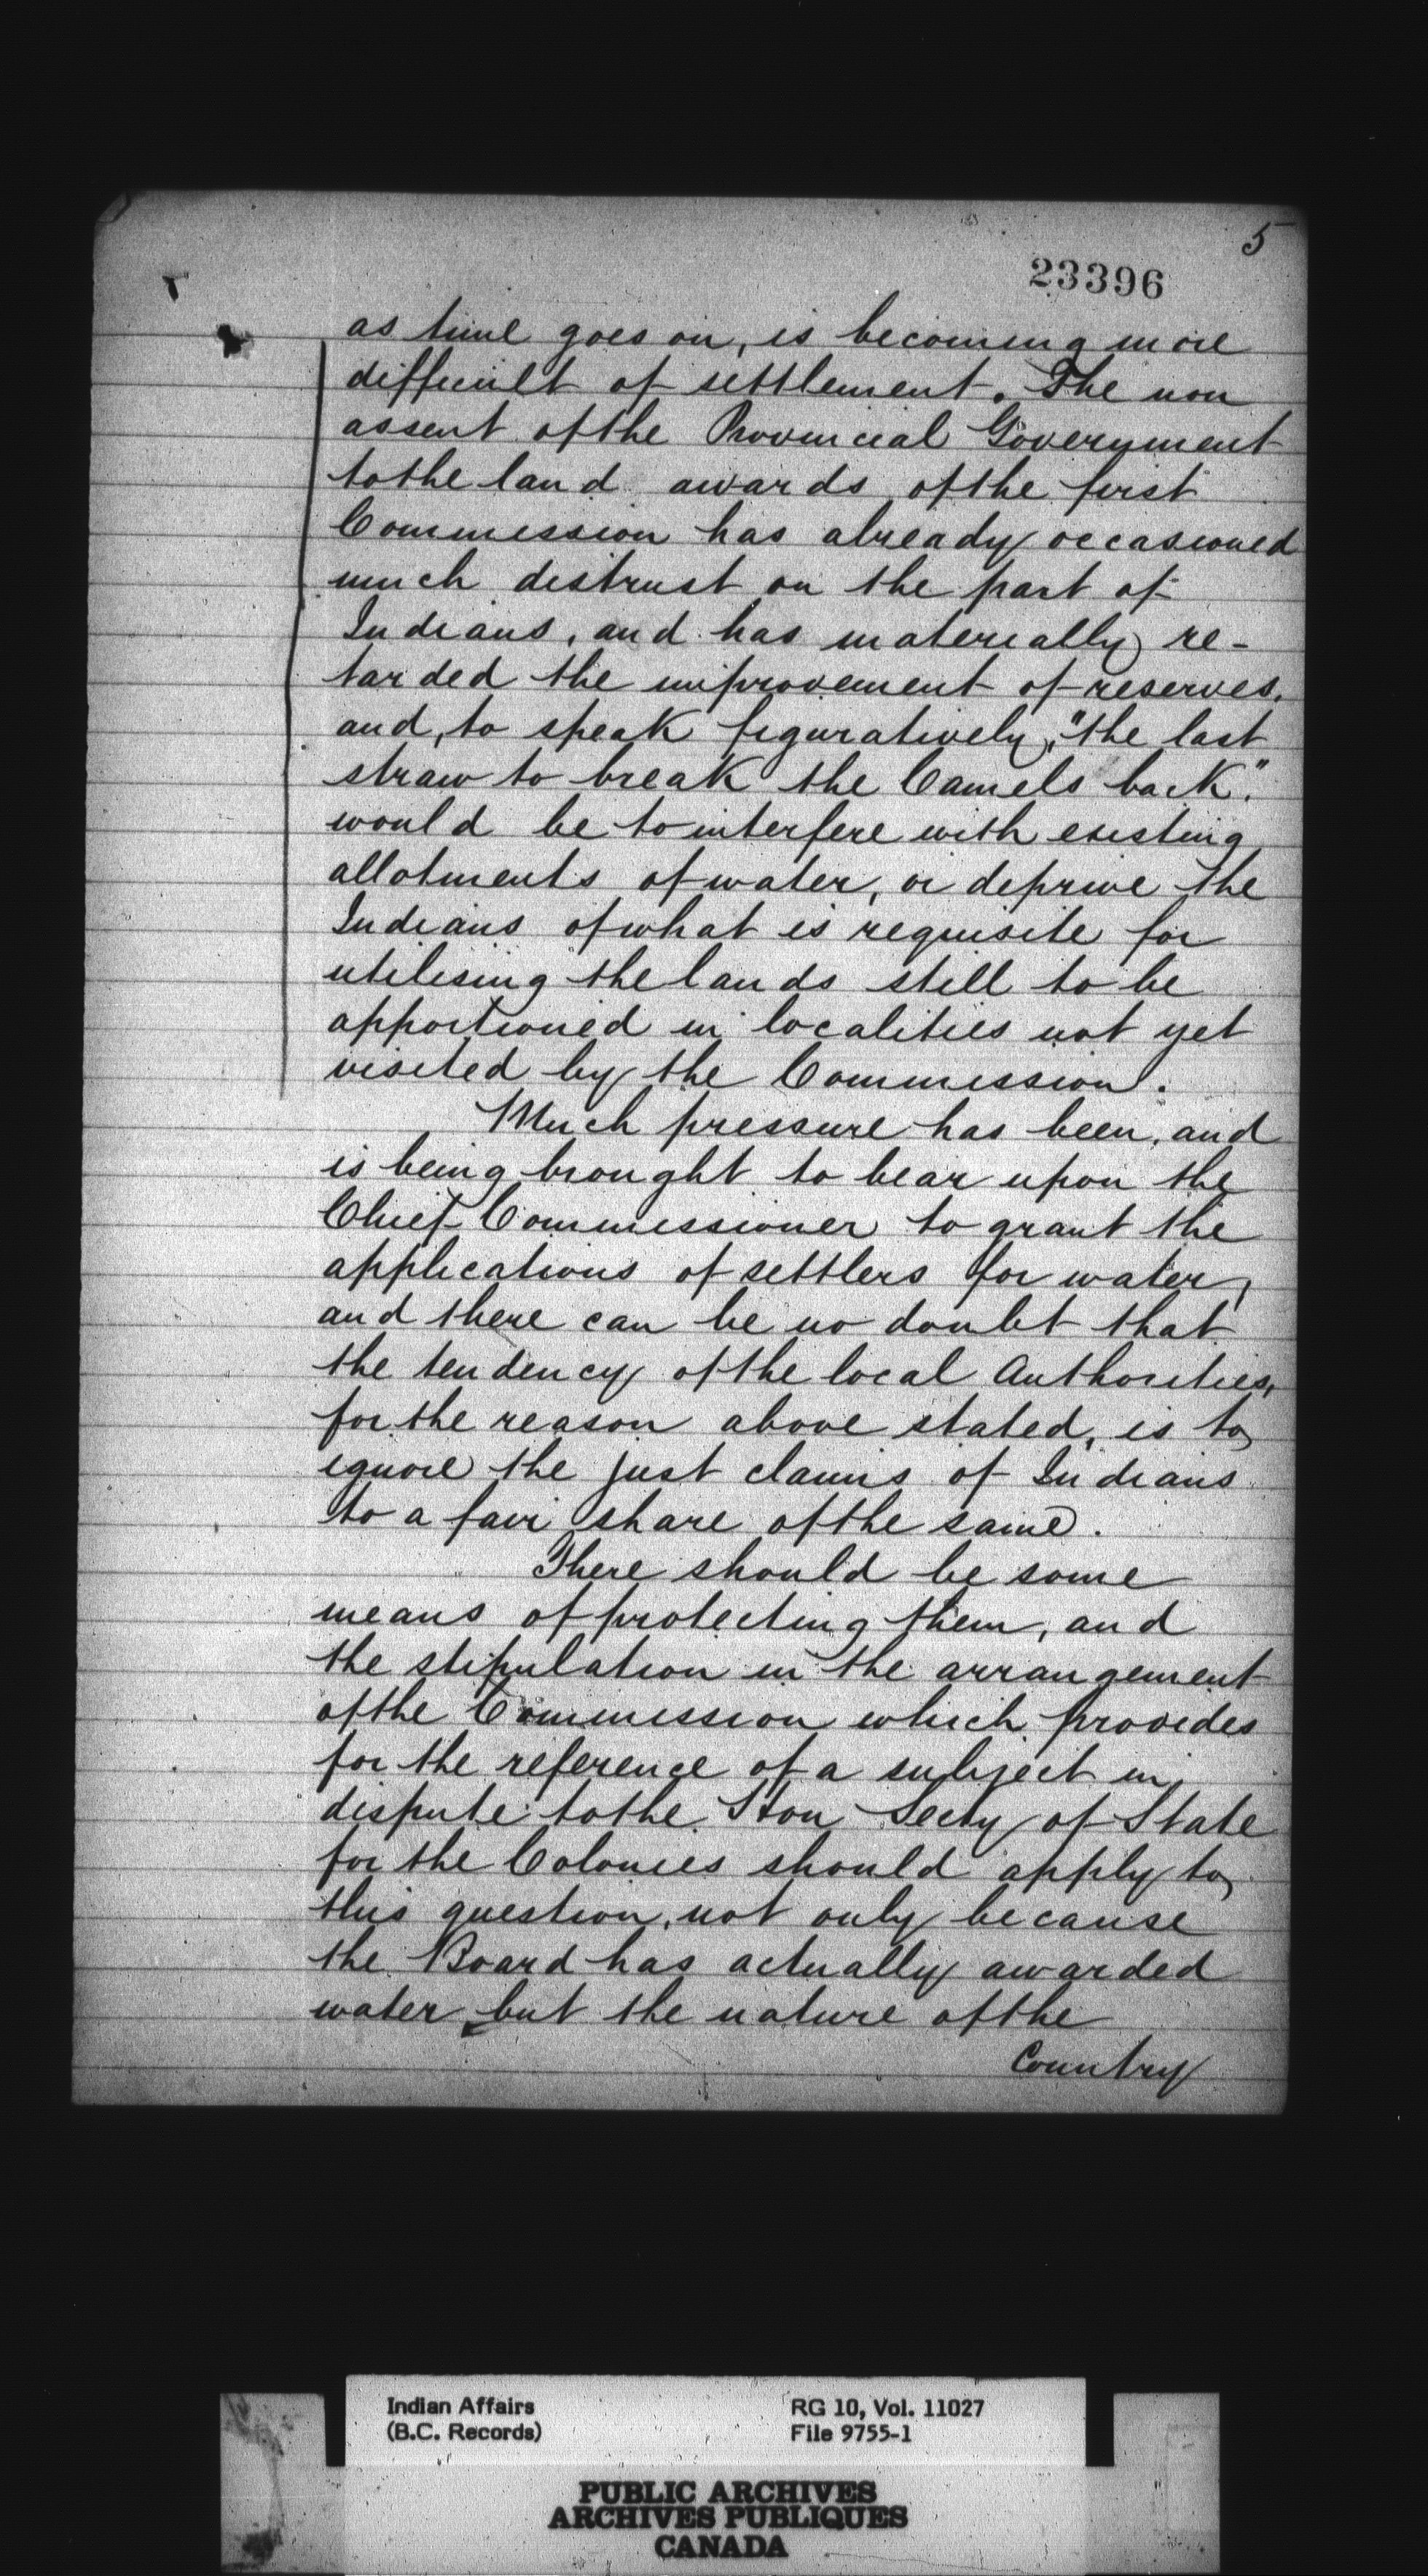 5
23396
as time goes on, is becoming more
difficult of settlement. The non
assent of the Provincial Government
to the land awards of the first
Commission has already occasioned
much distrust on the part of
Indians, and has materially re-
tarded the improvement of reserves,
and, to speak figuratively, "the last
straw to break the Camels back."
would be to interfere with existing
allotments of water, or deprive the
Indians of what is requisite for
utilising the lands still to be
apportioned in localities not yet
visited by the Commission.
Much pressure has been, and
is being brought to bear upon the
Chief Commissioner to grant the
applications of settlers for water,
and there can be no doubt that
the tendency of the local Authorities,
for the reason above stated, is to
ignore the just claims of Indians
to a fair share of the same.
There should be some
means of protecting them, and
the stipulation in the arrangement
of the Commission which provides
for the reference of a subject in
dispute to the Hon Secty of State
for the Colonies should apply to
this question, not only because
the Board has actually awarded
water but the nature of the
Country
Indian Affairs
(B.C. Records)
RG 10, Vol. 11027
File 9755-1
PUBLIC ARCHIVES
ARCHIVES PUBLIQUES
CANADA